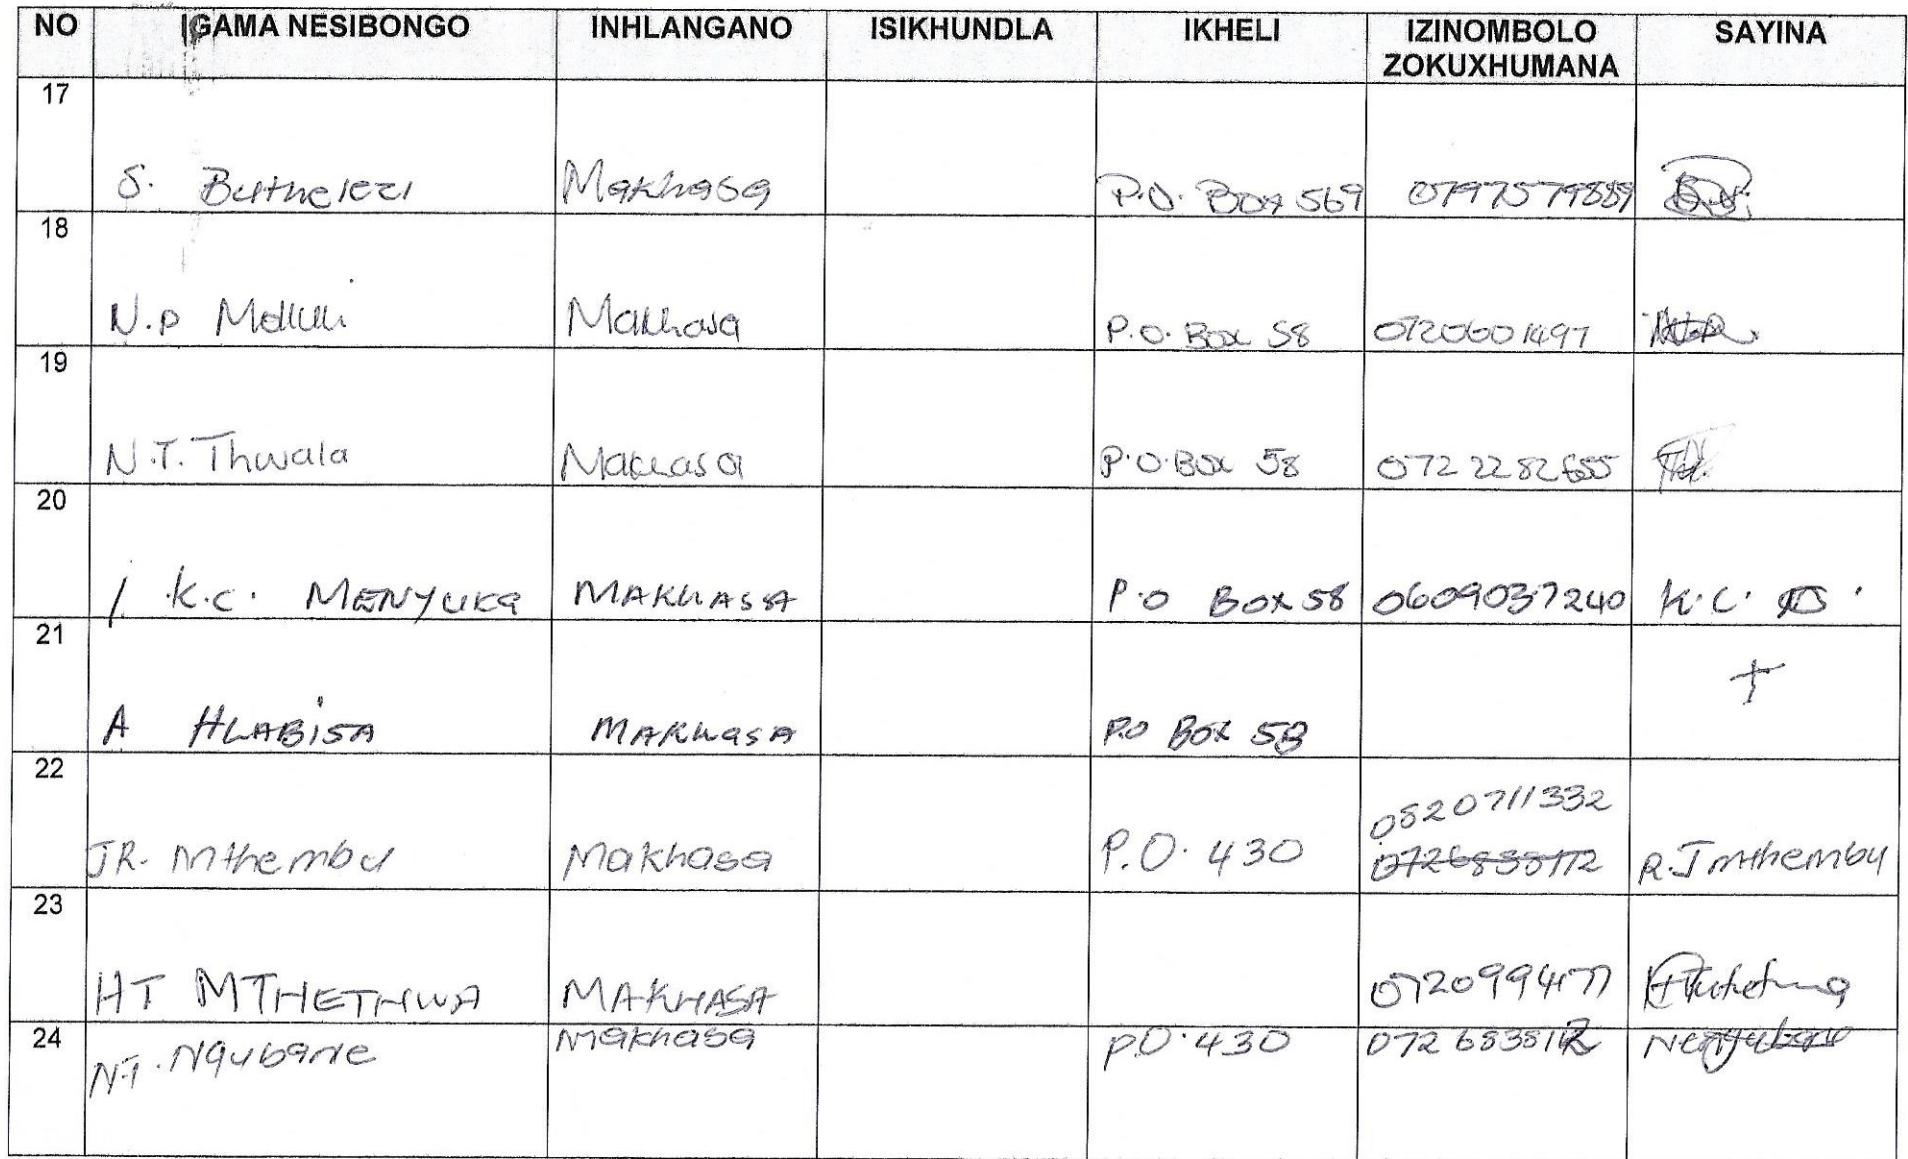 NO IGAMA NESIBONGO INHLANGANO ISIKHUNDLA IKHELI IZINOMBOLO ZOKUXHUMANA SAYINA
17
S. Buthelezi Makhasa P.O. Box 569 0797579889
18
N.P Mdluli Makhasa P.O. Box 58 0720601497
19
N.T. Thwala Makhasa P.O. Box 58 0722282655
20
/ K.C. MENYUKA MAKHASSA P.O Box 58 0609037240 K.C.
21
A HLABiSA MAKHASA P.O Box 58 +
22
0820711332
JR. Mthembu Makhasa P.O. 430 0726838112 R.J mthembu
23
HT MTHETHWA MAKHASA 0720994177
24
N.T. Nqubane Makhasa P.O. 430 0726838112